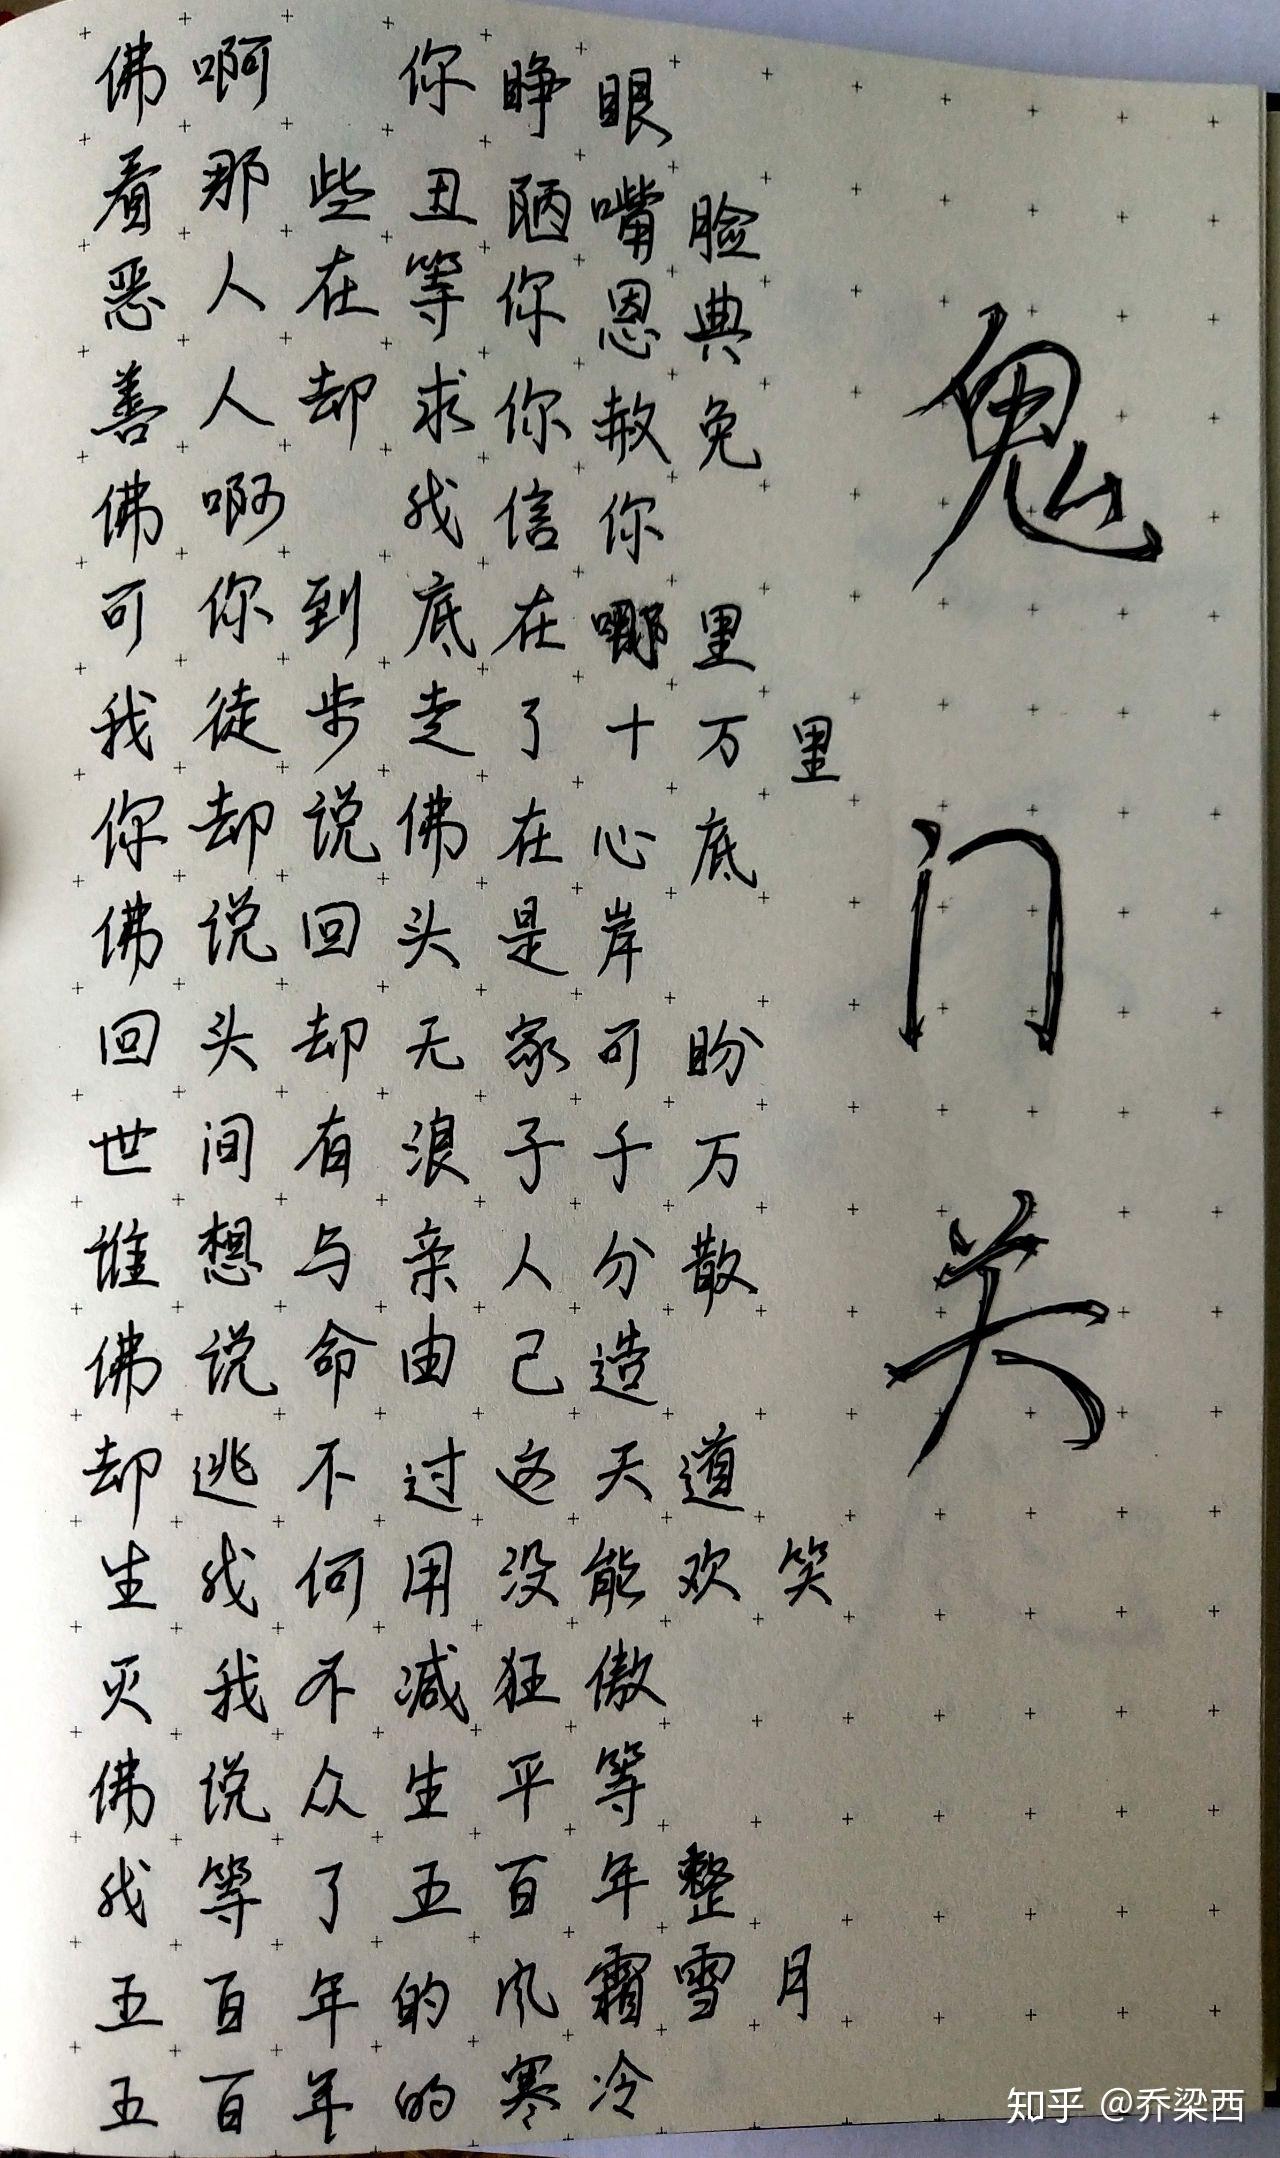 佛啊 你睁眼
看那些丑陋嘴脸
恶人在等你恩典
善人却求你赦免
佛啊 我信你
可你到底在哪里
我徒步走了十万里
你却说佛在心底
佛说回头是岸
回头却无家可盼
世间有浪子千万
谁想与亲人分散
佛说命由己造
却逃不过这天道
生我何用没能欢笑
灭我不减狂傲
佛说众生平等
我等了五百年整
五百年的风霜雪月
五百年的寒冷
鬼门关
知乎 @乔梁西